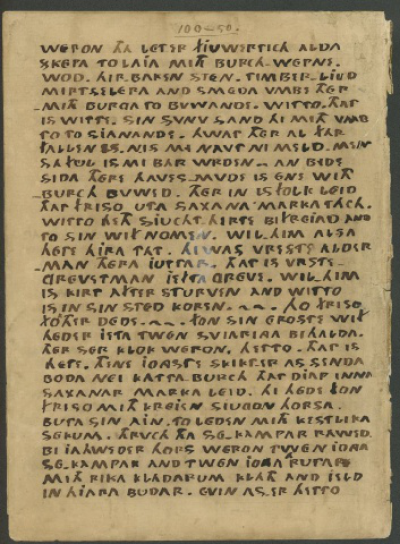 100-50.
WERON THA LETER FIUWERTICH ALDA
SKEPA TO LAIA MITH BURCH-WEPNE.
WOD. HIR.BAKEN STEN. TIMBER-LIUD
MIRTSELERA AND SMEDA VMBE THER
MITH BURGA TO BVWANDE. WITTO. THAT
IS WITTE. SIN SVNV SAND HI MITH VMB
TO TO SIANANDE. HWAT THER AL FAR
FALLEN IS. NIS MI NAVT NI MELD. MEN
SA FUL IS MI BAR WRDEN. AN BEDE
SIDA THERE HAVES-MVDE IS ENE WITH
BURCH BVWED. THER IN IS FOLK LEID
THAT FRISO UTA SAXANA-MARKA THACH.
WITTO HETH SIUCHT.HIRTE BIFREIAD AND
TO SIN WIF NOMEN. WIL.HIM ALSA
HETE HIRA TAT. HI WAS VRESTE ALDER
-MAN THERA IUTTAR. THAT IS VRSTE-
GREVETMAN IEFTA GREVE. WIL.HIM
IS KIRT AFTER STURVEN AND WITTO
IS IN SIN STED KOREN. ~~. HO FRISO
FORTHER DEDE. ~~. FON SIN EROSTE WIF
HEDER IETA TWEN SVIARINGA BIHALDA.
THER SER KLOK WERON. HETTO. THAT IS
HETE. THENE IONGSTE SKIKTER AS SENDA
BODA NEI KATTA BURCH THAT DIAP INNA
SAXANAR MARKA LEID. HI HEDE FON
FRISO MITH KREIEN SIUGON HORSA.
BUTA SIN AIN. TO LEDEN MITH KESTLIKA
SEKUM. THRVCH THA SE.KAMPAR RAWED.
BI IAHWEDER HORS WERON TWEN IONGA
SE.KAMPAR AND TWEN IONGA RUTAR
MITH RIKA KLADARUM KLATH AND IELD
IN HIARA BUDAR. EVIN AS.ER HETTO